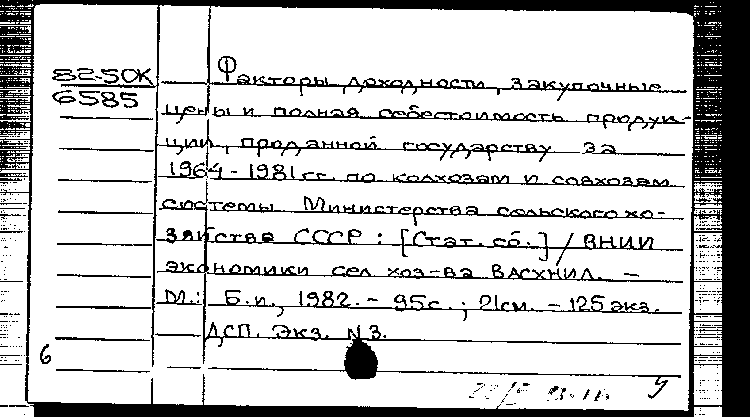 82-5ОК
6585
Факторы доходности, закупочные
цены и полная себестоимость продук-
ции, проданной государству за
1964-1981 гг. по колхозам и совхозам
системы Министерства сельского хо-
зяйства СССР : [Стат. сб.] / ВНИИ
экономики сел хоз-ва ВАСХНИЛ. -
М.: Б.и., 1982. - 95с. ; 21см. - 125 экз.
ДСП. Экз. N 3.
6